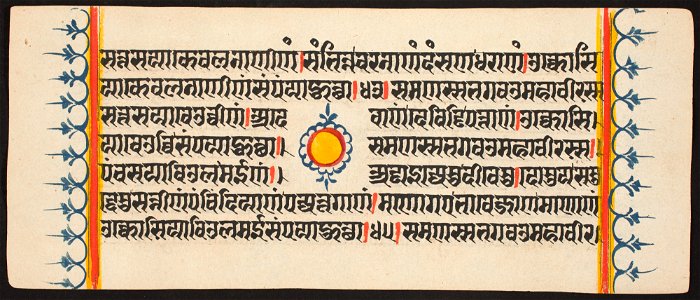 सत्तसयाकेवलनाणीणं।संभिन्नवरनाणदंसणधराणं।उक्कोसि
याकेवलनाणीणंसंपयाहुत्था।४३।समणस्सभगवओमहावीरस्स
सत्तसयावेउव्वीणं।अदे वाणंदेविड्ढिपत्ताणं।उक्कोसि।
यावेउव्विसंपयाहुत्था।। समणस्सभगवओमहावीरस्स।
पंचसयाविउलमईणं।। अड्ढाइज्जेसुदीवेसु।दोसुयसमु
द्देसुसन्नीणंपंचिंदियाणंपज्जत्तगाणं।मणोगएभावेजाणमाणाणं
उक्कोसियाविउलमईसंपयाहुत्था।४५।समणस्सभगवओमहावीर।